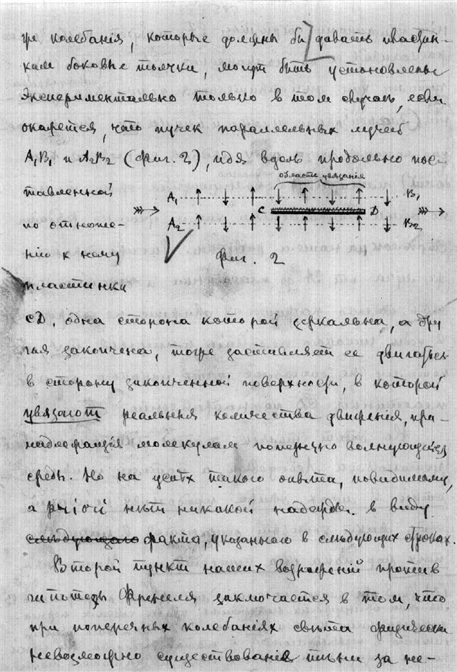 же колебанія, которые должны бы давать пластин-
кам боковые толчки, могут быть установлены
экспериментально только в том случаѣ, если
окажется, что пучек параллельных лучей
A₁B₁ и A₂B₂ (фиг. 2), идя вдоль продольно пос-
тавленной
по отноше-
нію к нему
пластинки
области увязанія
A₁ B₁
C D
A₂ B₂
Фиг. 2
CD, одна сторона которой зеркальна, а дру-
гая закопчена, тоже заставляет ее двигаться
в сторону закопченной поверхности, в которой
увязают реальныя количества движенія, при-
надлежащія молекулам поперечно волнующейся
среды. Но на успѣх такого опыта, повидимому,
a priori нѣт никакой надежды в виду
слѣдующаго факта, указаннаго в слѣдующих строках.
Второй пункт наших возраженій против
гипотезы Френеля заключается в том, что
при поперечных колебаніях свѣта физически
невозможно существованіе тѣни за не-